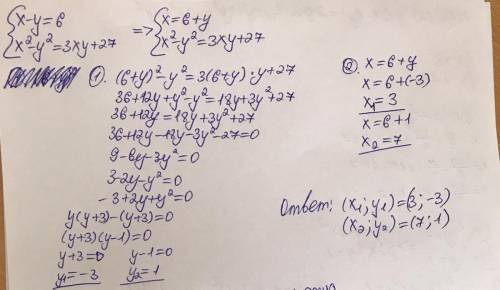 {x-y=6 => {x=6+y
{x²-y²=3xy+27 {x²-y²=3xy+27
①. (6+y)²-y²=3(6+y)·y+27
36+12y+y²-y²=18y+3y²+27
36+12y=18y+3y²+27
36+12y-18y-3y²-27=0
9-6y-3y²=0
3-2y-y²=0
-3+2y+y²=0
y(y+3)-(y+3)=0
(y+3)(y-1)=0
y+3=0 y-1=0
y₁=-3 y₂=1
②. x=6+y
x=6+(-3)
x₁=3
x=6+1
x₂=7
Ответ: (x₁; y₁)=(3; -3)
(x₂; y₂)=(7; 1)